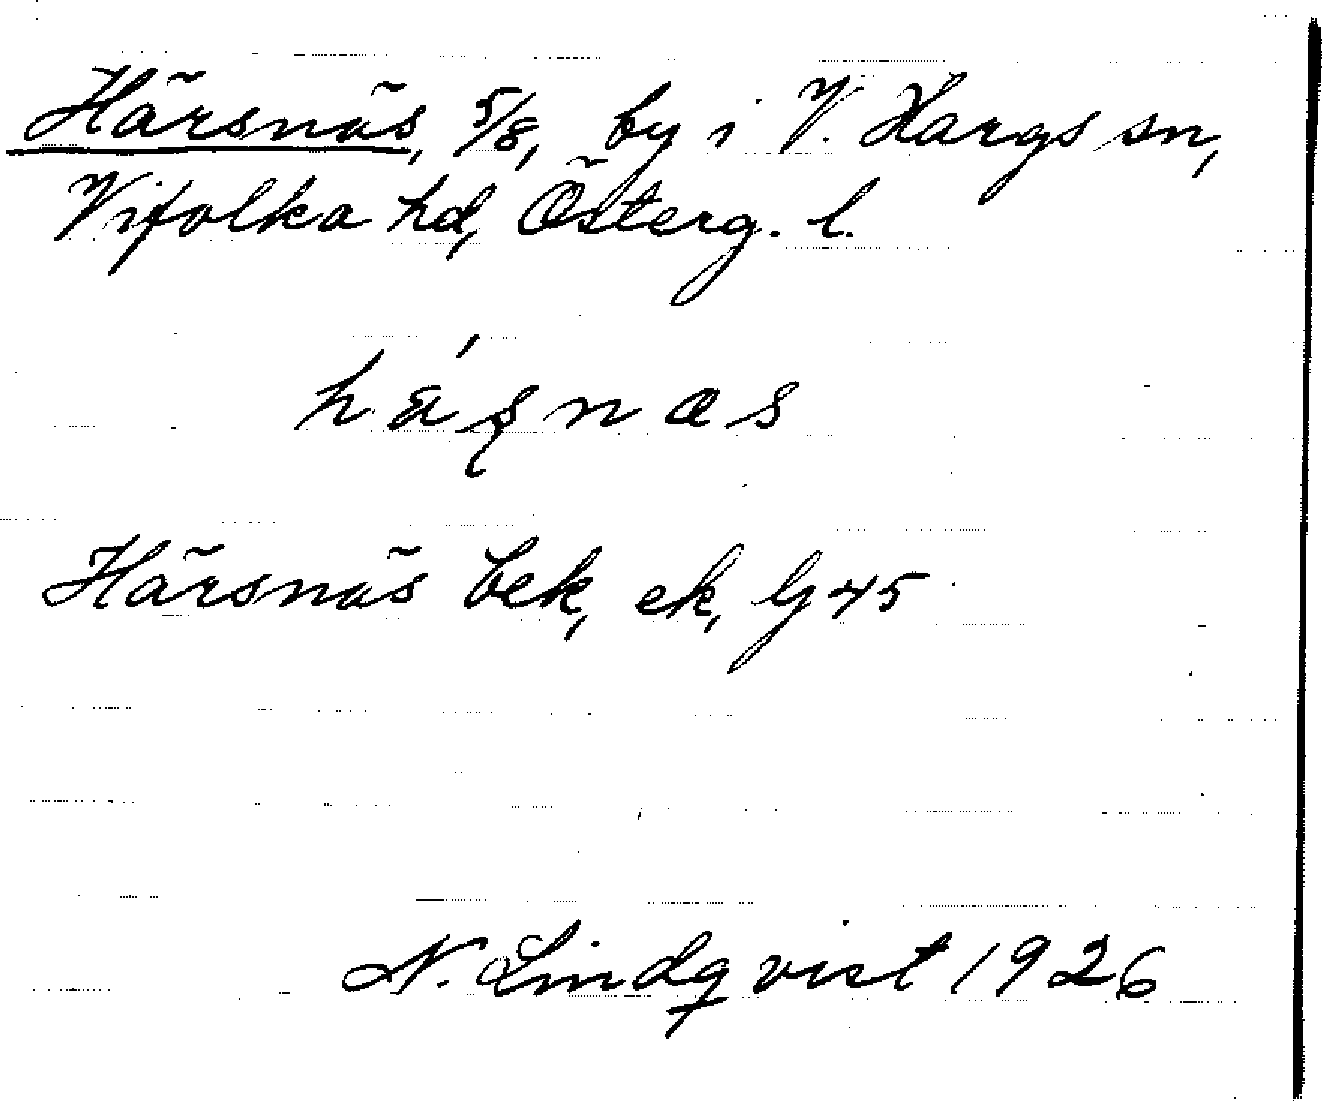 Härsnäs, 5/8, by i V. Hargs sn,
Vifolka hd, Österg. l.
hä́ʂnas
Härsnäs bek, ek, G 45
N. Lindqvist 1926